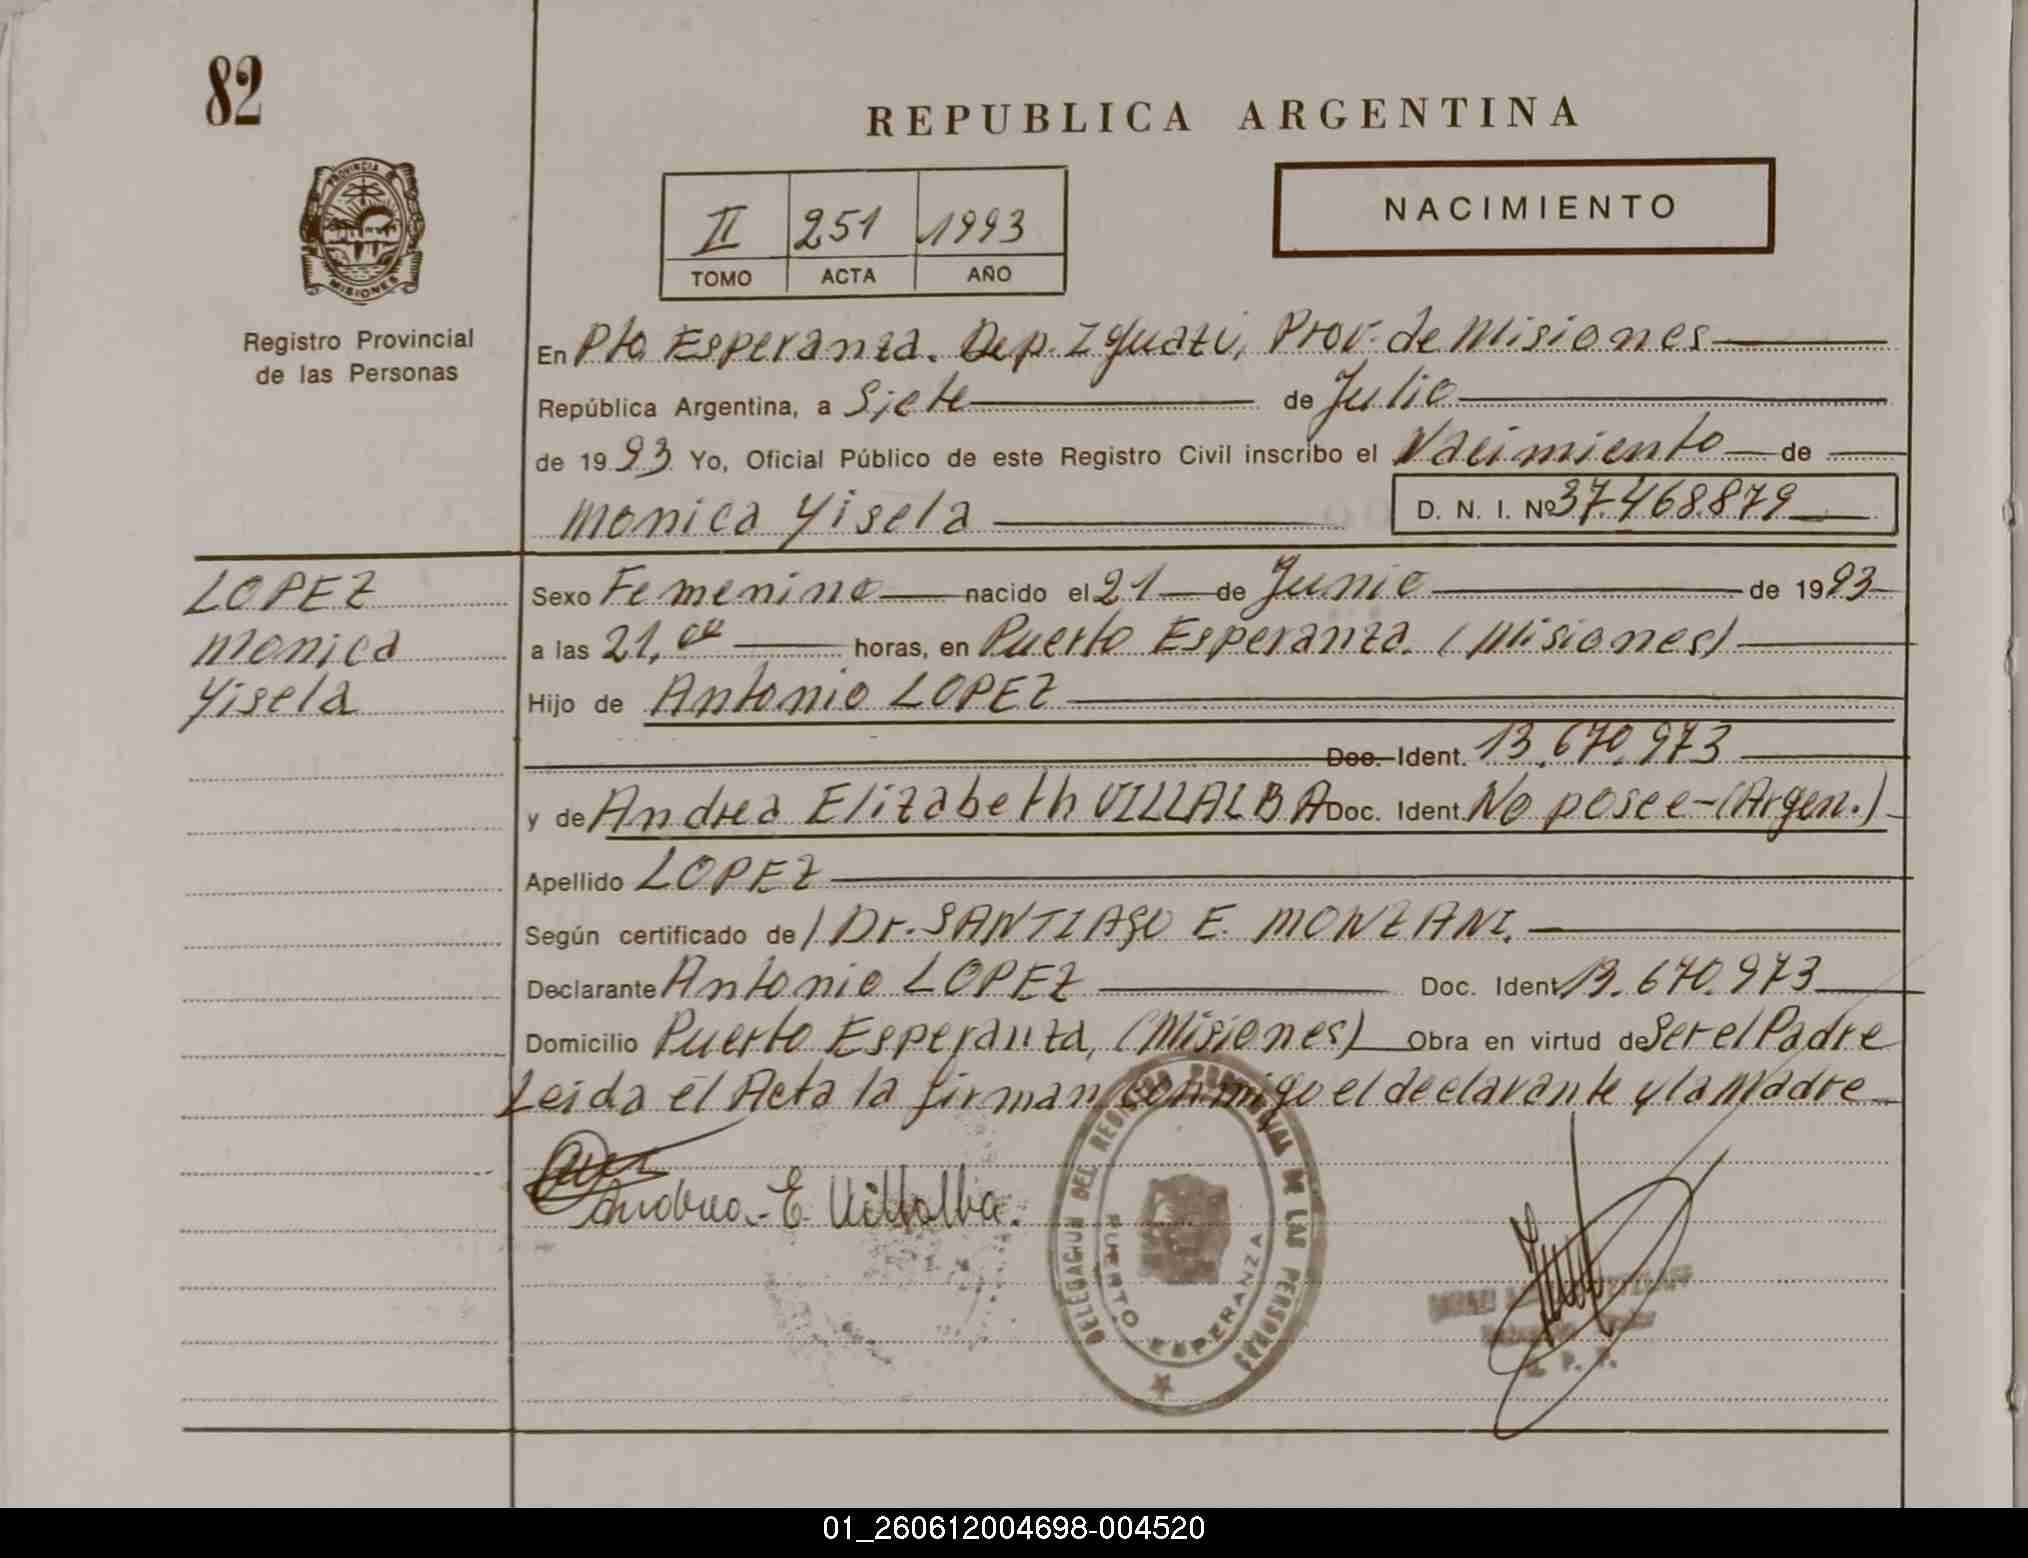 82
REPUBLICA ARGENTINA
PROVINCIA DE
MISIONES
Registro Provincial
de las Personas
II 251 1993
TOMO ACTA AÑO
NACIMIENTO
En Pto Esperanza. Dep. Iguazú, Prov. de Misiones
República Argentina, a Siete de Julio
de 1993 Yo, Oficial Público de este Registro Civil inscribo el Nacimiento de
Monica Yisela D. N. I. Nº 37.468.879
LOPEZ
Monica
Yisela
Sexo Femenino nacido el 21 de Junio de 1993
a las 21,00 horas, en Puerto Esperanza. (Misiones)
Hijo de Antonio LOPEZ
Doc. Ident. 13.670.973
y de Andrea Elizabeth VILLALBA Doc. Ident. No posee-(Argen.)
Apellido LOPEZ
Según certificado de/ Dr. SANTIAGO E. MONZANI.
Declarante Antonio LOPEZ Doc. Ident 13.670.973
Domicilio Puerto Esperanza, (Misiones) Obra en virtud de Ser el Padre
Leida el Acta la firman conmigo el declarante y la Madre
Andrea. E. Villalba.
DELEGACION DEL REGISTRO PROVINCIAL DE LAS PERSONAS
PUERTO ESPERANZA
01_260612004698-004520